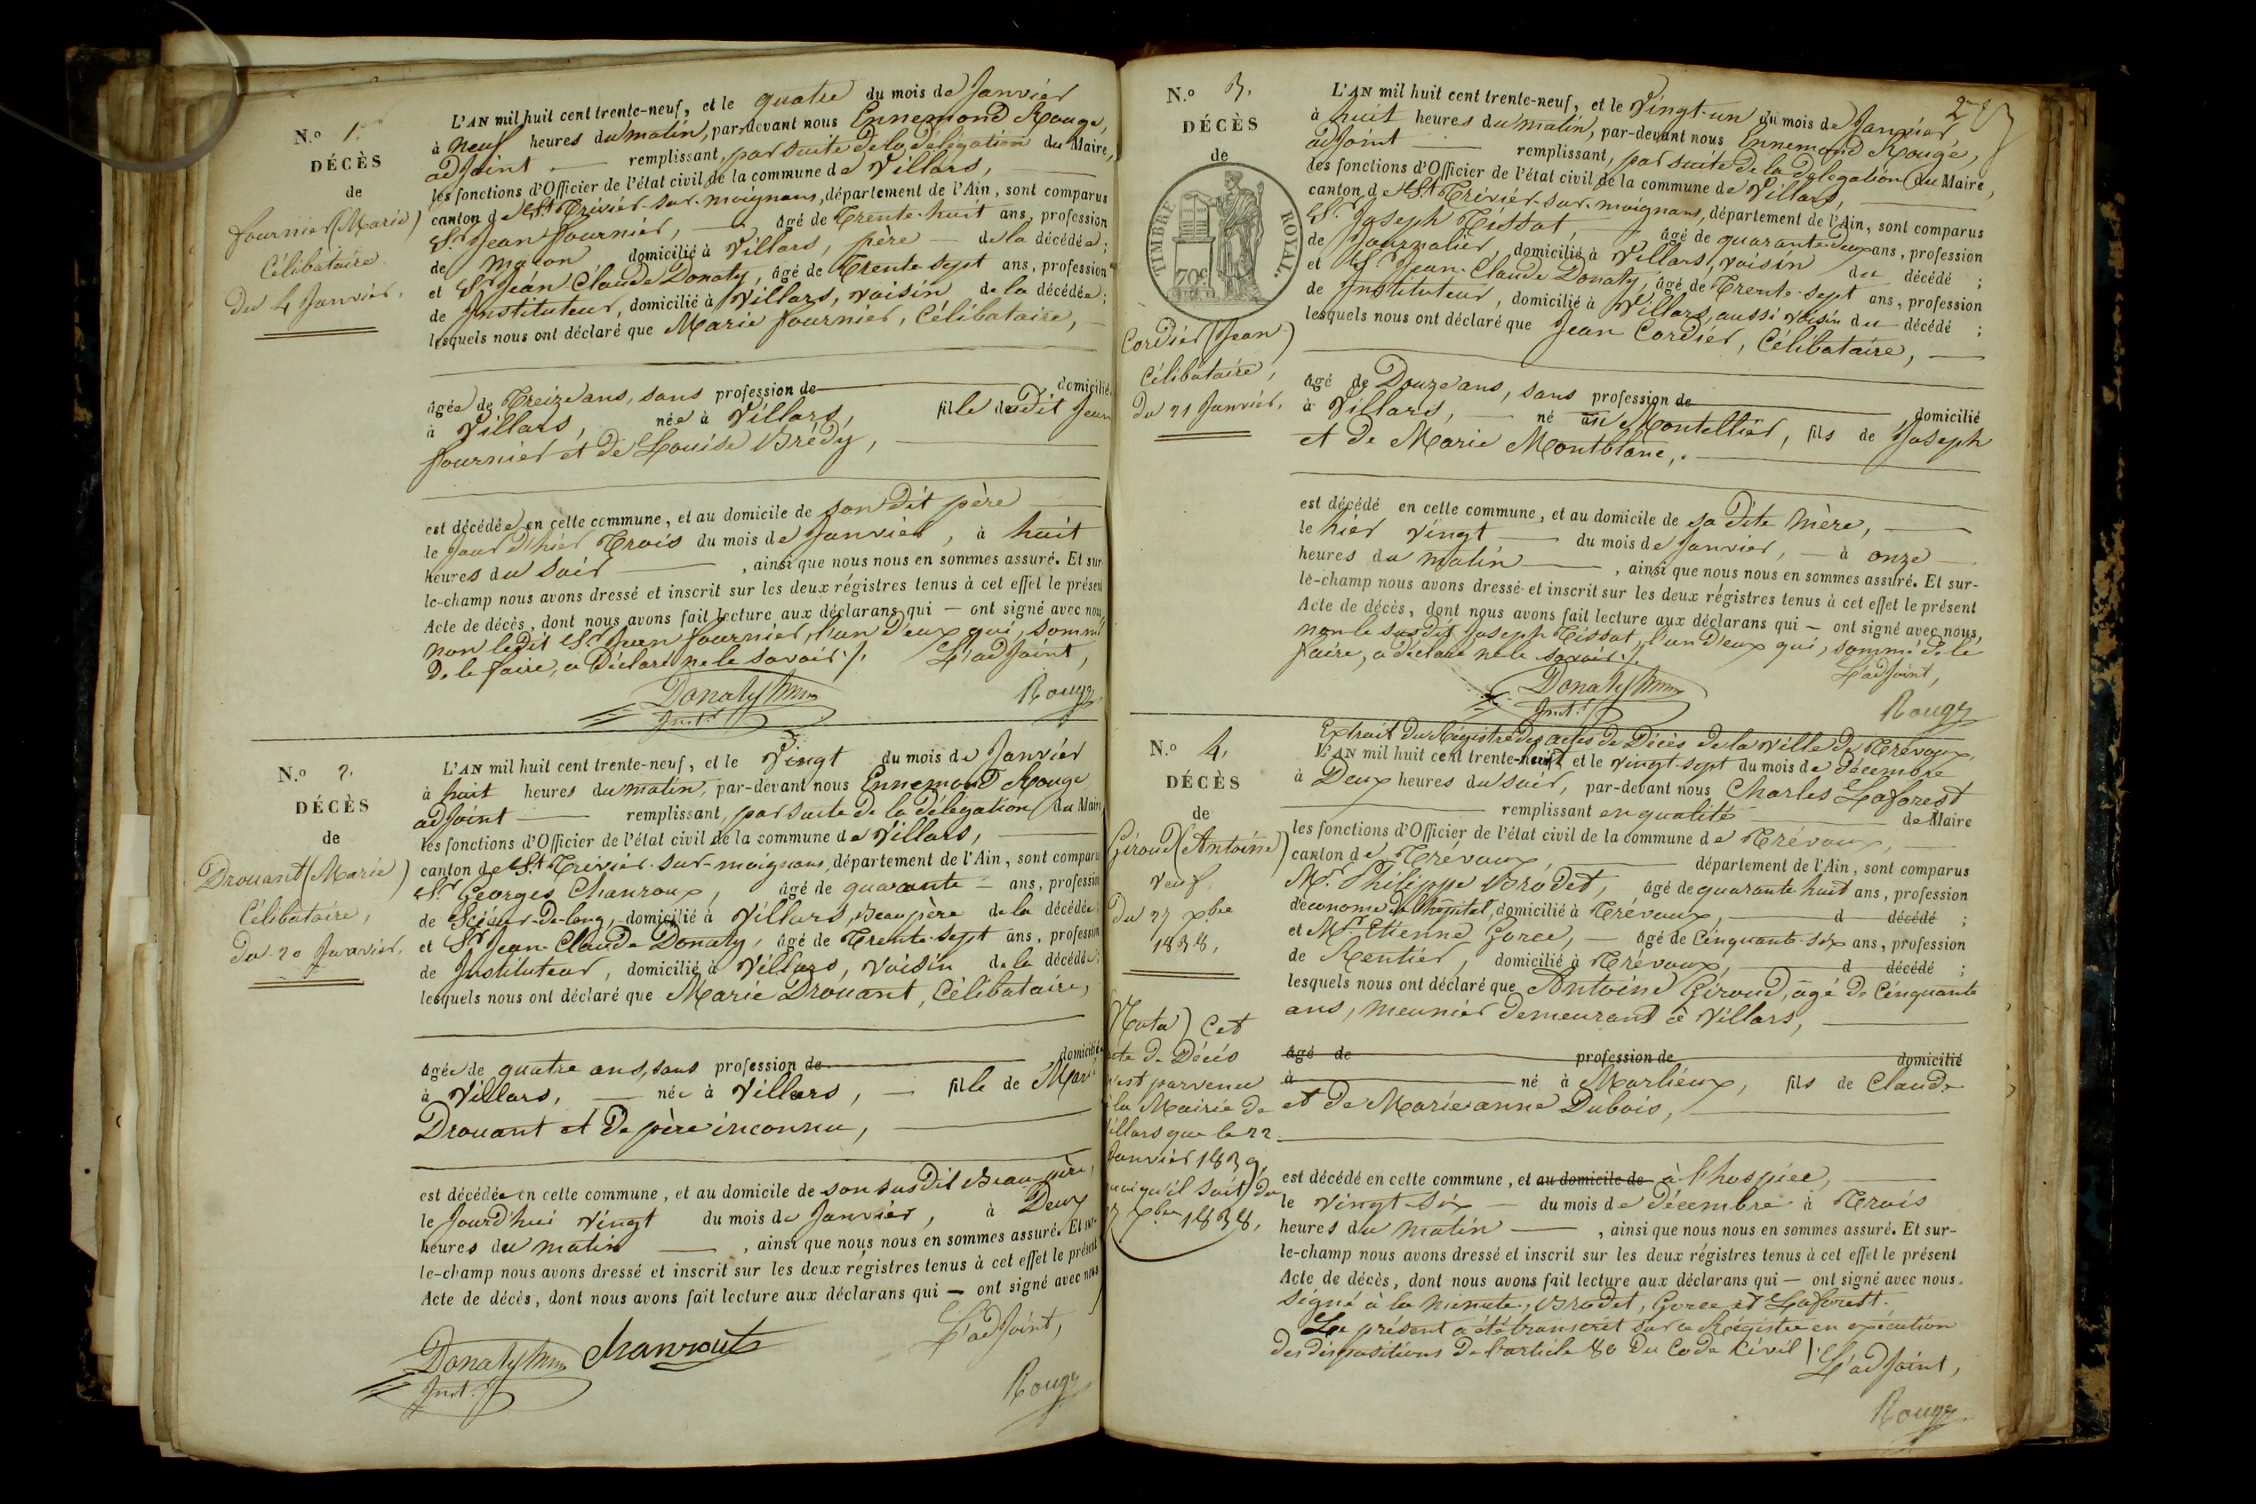 N.º 1.
DÉCÈS
de
fournier (Marie)
Célibataire
Du 4 Janvier.
L'AN mil huit cent trente-neuf, et le quatre du mois de Janvier
à Neuf heures du matin, par-devant nous Ennemond Rouge,
adjoint — remplissant, par suite de la délégation du Maire,
les fonctions d'Officier de l'état civil de la commune de Villars,
canton de St. Trivier-sur-moignans, département de l'Ain, sont comparus
Sr. Jean fournier, — âgé de Trente-huit ans, profession
de maçon domicilié à Villars, père — de la décédée;
et Sr. Jean Claude Donaty, âgé de Trente-sept ans, profession
de Instituteur, domicilié à Villars, voisin de la décédée;
lesquels nous ont déclaré que Marie fournier, Célibataire, —
âgée de Treize ans, sans profession de — domicilié
à Villars, née à Villars, fille dudit Jean
fournier et de Louise Brédy, —
est décédée en cette commune, et au domicile de son dit père
le Jour d'hier Trois du mois de Janvier, à huit
heures du soir — , ainsi que nous nous en sommes assuré. Et sur-
le-champ nous avons dressé et inscrit sur les deux régistres tenus à cet effet le présent
Acte de décès, dont nous avons fait lecture aux déclarans qui — ont signé avec nous
non ledit Sr. Jean fournier, l'un d'eux qui, sommé
de le faire, a déclaré ne le savoir./. L'adjoint,
Donaty
Inst.r
Rouge
N.º 2.
DÉCÈS
de
Drouant (Marie)
Célibataire,
du 20 Janvier.
L'AN mil huit cent trente-neuf, et le Vingt du mois de Janvier
à huit heures du matin, par-devant nous Ennemond Rouge
adjoint — remplissant, par suite de la délégation du Maire
les fonctions d'Officier de l'état civil de la commune de Villars, —
canton de St. Trivier-sur-moignans, département de l'Ain, sont comparus
Sr. Georges Chanroux, âgé de quarante — ans, profession
de Scieur-de-long, domicilié à Villars, Beaupère de la décédée;
et Sr. Jean-Claude Donaty, âgé de Trente-sept ans, profession
de Instituteur, domicilié à Villars, voisin de la décédée;
lesquels nous ont déclaré que Marie Drouant, Célibataire,
âgée de quatre ans, sans profession de — domicilié
à Villars, — née à Villars, — fille de Marie
Drouant et de père inconnu, —
est décédée en cette commune, et au domicile de son susdit Beau-père,
le Jourd'hui vingt du mois de Janvier, à Deux
heures du matin — , ainsi que nous nous en sommes assuré. Et sur-
le-champ nous avons dressé et inscrit sur les deux régistres tenus à cet effet le présent
Acte de décès, dont nous avons fait lecture aux déclarans qui — ont signé avec nous
L'adjoint,
Donaty
Inst.r
Rouge
287
N.º 3.
DÉCÈS
de
TIMBRE ROYAL.
70c
Cordier (Jean)
Célibataire,
du 21 Janvier.
L'AN mil huit cent trente-neuf, et le Vingt-un du mois de Janvier
à huit heures du matin, par-devant nous Ennemond Rouge,
adjoint — remplissant, par suite de la délégation du Maire,
les fonctions d'Officier de l'état civil de la commune de Villars,
canton de St. Trivier-sur-moignans, département de l'Ain, sont comparus
Sr. Joseph Tissot, âgé de quarante-deux ans, profession
de Journalier, domicilié à Villars, voisin du décédé;
et Sr. Jean-Claude Donaty, âgé de Trente-sept ans, profession
de Instituteur, domicilié à Villars, aussi voisin du décédé;
lesquels nous ont déclaré que Jean Cordier, Célibataire, —
âgé de Douze ans, sans profession de — domicilié
à Villars, — né au Montellier, fils de Joseph
et de Marie Montblanc, . —
est décédé en cette commune, et au domicile de sa dite mère, —
le hier vingt — du mois de Janvier, — à onze
heures du matin — , ainsi que nous nous en sommes assuré. Et sur-
le-champ nous avons dressé et inscrit sur les deux régistres tenus à cet effet le présent
Acte de décès, dont nous avons fait lecture aux déclarans qui — ont signé avec nous,
non le susdit Joseph Tissot, l'un d'eux qui, sommé de le
faire, a déclaré ne le savoir./.
L'adjoint,
Donaty
Inst.r
Rouge
N.º 4.
DÉCÈS
de
Giroud (Antoine)
veuf,
du 27 xbre
1838.
Nota) Cet
acte de Décès
n'est parvenu
à la Mairie de
Villars que le 22
Janvier 1839,
quoiqu'il soit du
27 Xbre 1838.
Extrait du Régistre des actes de Décès de la ville de Trévoux.
L'AN mil huit cent trente-huit et le vingt-sept du mois de décembre
à Deux heures du soir, par-devant nous Charles Laforest
— remplissant en qualité — de Maire
les fonctions d'Officier de l'état civil de la commune de Trévoux, —
canton de Trévoux, — département de l'Ain, sont comparus
Mr. Philippe Brodet, âgé de quarante huit ans, profession
d'économe de l'hôpital, domicilié à Trévoux, — d décédé ;
et Mr. Etienne Gorce, — âgé de Cinquante-six ans, profession
de Rentier, domicilié à Trévoux, — d décédé ;
lesquels nous ont déclaré que Antoine Giroud, âgé de Cinquante
ans, meunier demeurant à Villars, —
âgé de profession de domicilié
à — né à Marlieux, fils de Claude
et de Marieanne Dubois, —
est décédé en cette commune, et au domicile de à l'hospice, —
le vingt-six — du mois de décembre à Trois
heures du matin — , ainsi que nous nous en sommes assuré. Et sur-
le-champ nous avons dressé et inscrit sur les deux régistres tenus à cet effet le présent
Acte de décès, dont nous avons fait lecture aux déclarans qui — ont signé avec nous.
Signé à la minute, Brodet, Gorce et Laforest.
Le présent a été transcrit sur ce Régistre en exécution
des dispositions de l'article 80 du Code Civil /. L'adjoint,
Rouge